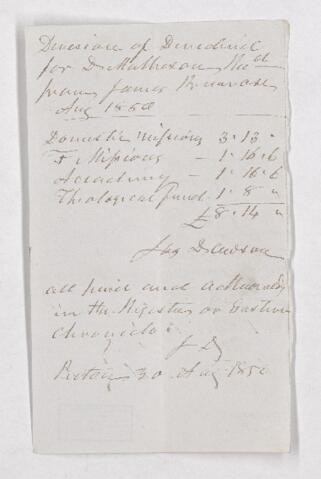 Division of Dividend
for D Matheson Recd
from James Primrose
Aug 1850
Domestic Missions 3. 13 "
F Missions - 1. 16. 6
Academy - 1. 16. 6
Theological Fund 1. 8 "
£8. 14 "
Jas Dawson
all paid and acknowledged
in the Register or Eastern
Chronicle.
J D
Pictou 30 Aug 1850